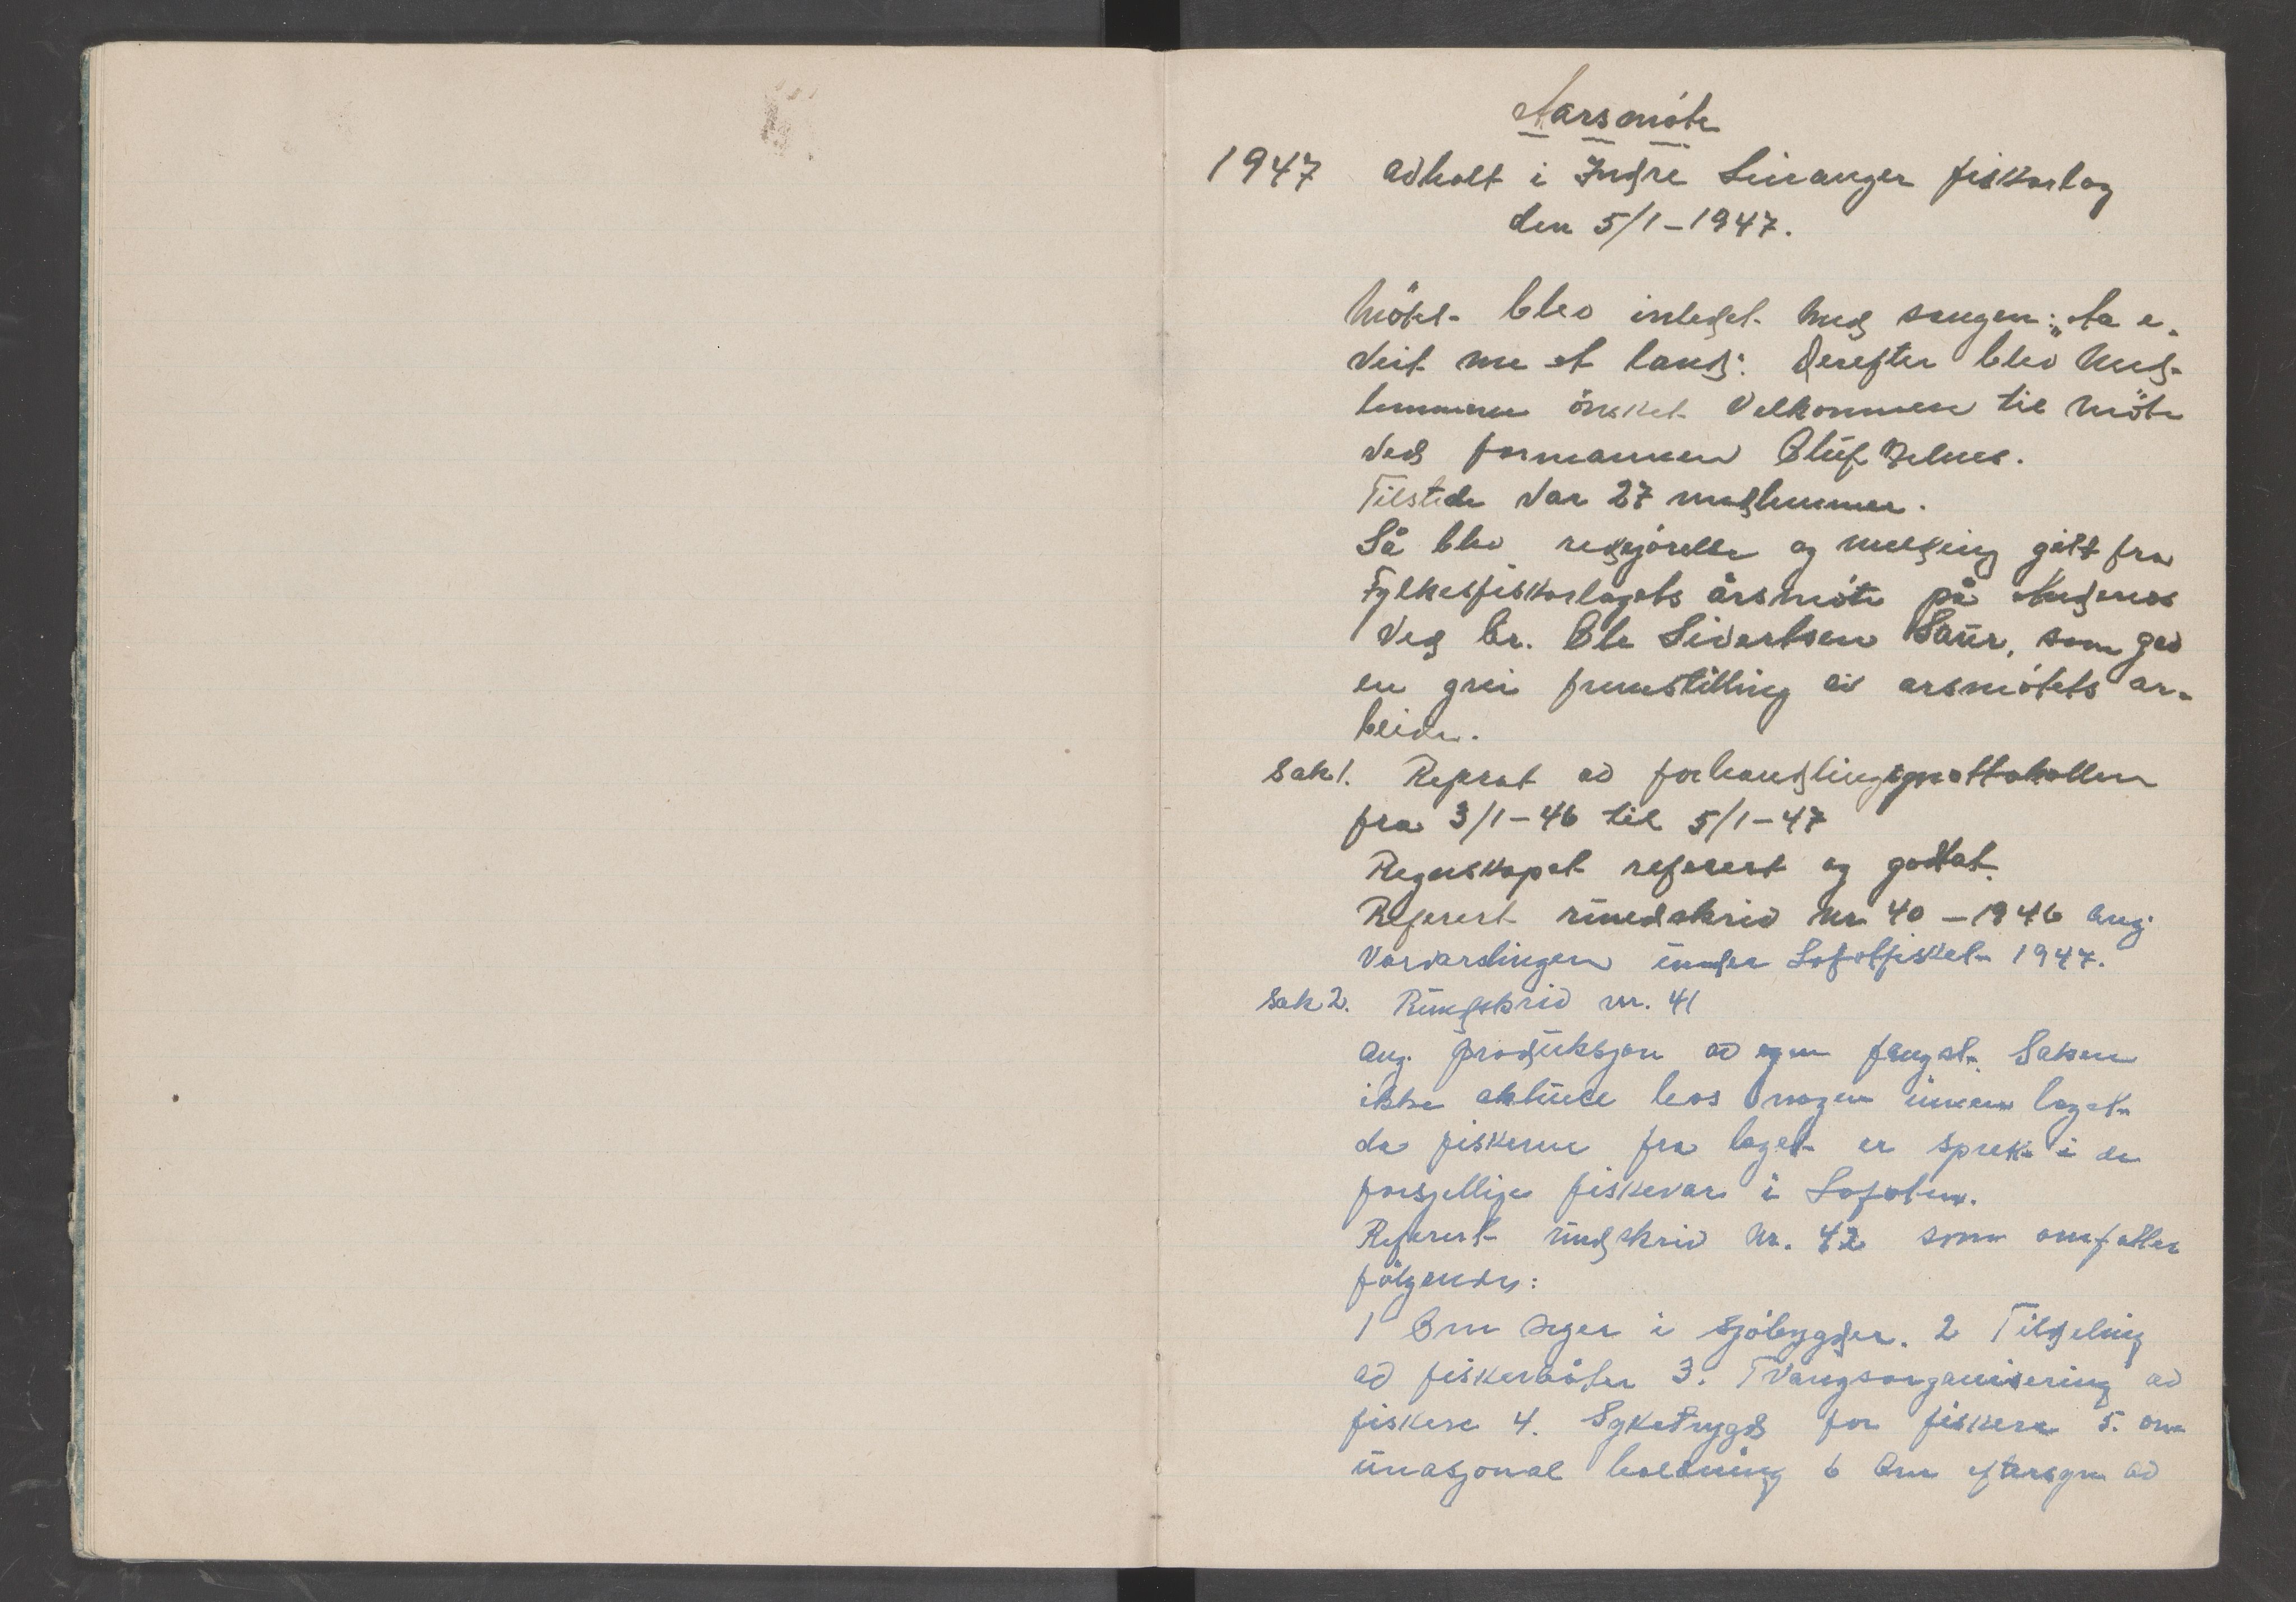 Aarsmöte
1947 avholt i Indre Sinanger fiskarlag
den 5/1-1947.
Mötet blev inledet med sangen: "Aa e,
veit me et land". Derefter blev med-
lemmene önsket velkommen til möte
ved formannen Oluf
Tilstede var 27 medlemmer.
Så blev redegjörelse og melding gitt fra
Fylkesfiskarlagets årsmöte på Andenes
ved br. Ole Sivertsen Saur, som gav
en grei fremstilling av arsmötets ar-
beide.
Sak 1. Referat av forhandlingsprottokollen
fra 3/1-46 til 5/1-47
Regnskapet referert og godtat.
Referert rundskriv Nr 40 - 1946 ang.
Værvarslingen under Lofotfisket 1947.
Sak 2. Rundskriv nr. 41
ang. produksjon av egen fangst. Saken
ikke aktuell hos nogen innen laget
da fiskerne fra laget er spret i de
forsjellige fiskevær i Lofoten.
Referert rundskriv Nr. 42 som omfatter
fölgende:
1 Om leger i sjöbygder. 2 Tildeling
av fiskerbåter 3. Tvangsorganisering av
fiskere 4. Syketrygd for fiskere 5. om
unasjonal holdning 6 Om eftersyn av